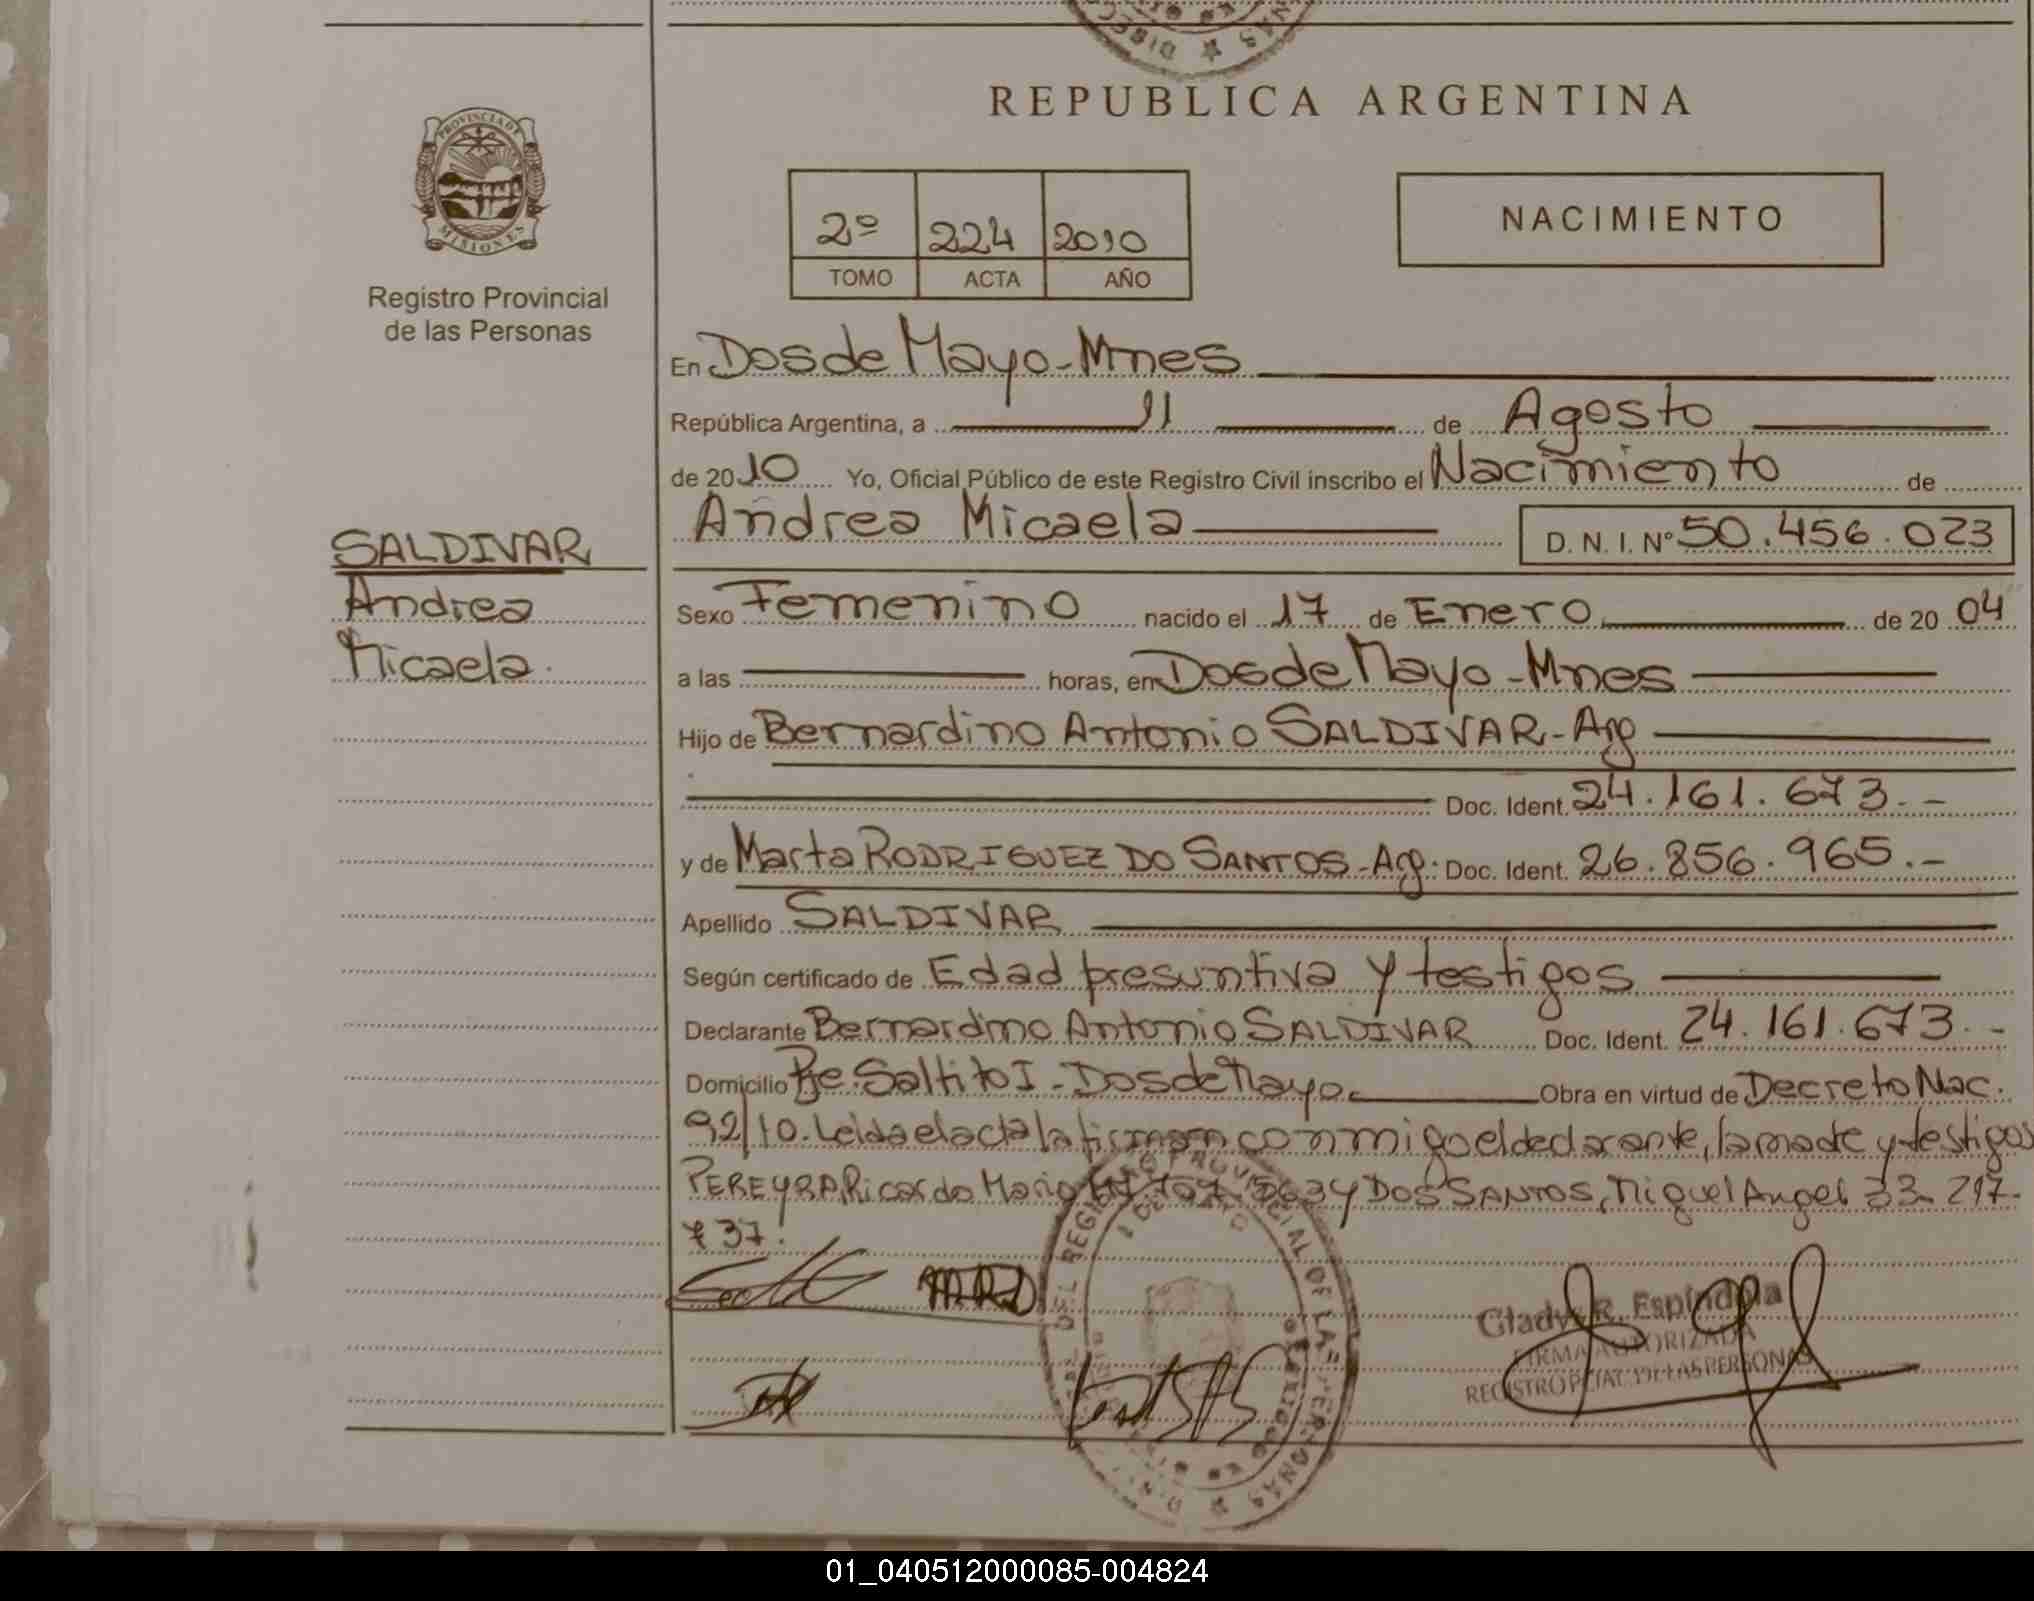 REPUBLICA ARGENTINA
PROVINCIA D
MISIONES
Registro Provincial
de las Personas
2º 224 2010
TOMO ACTA AÑO
NACIMIENTO
En Dos de Mayo - Mnes
República Argentina, a 11 de Agosto
de 2010 Yo, Oficial Público de este Registro Civil inscribo el Nacimiento de
Andrea Micaela D. N. I. Nº 50.456.023
SALDIVAR
Andrea
Micaela.
Sexo Femenino nacido el 17 de Enero de 2004
a las horas, en Dos de Mayo - Mnes
Hijo de Bernardino Antonio SALDIVAR - Arg
Doc. Ident. 24.161.673.-
y de Marta RODRIGUEZ DO SANTOS - Arg. Doc. Ident. 26.856.965.-
Apellido SALDIVAR
Según certificado de Edad presuntiva y testigos
Declarante Bernardino Antonio SALDIVAR Doc. Ident. 24.161.673.-
Domicilio Pje. Saltito I - Dos de Mayo. Obra en virtud de Decreto Nac.
92/10. Leida el acta la firman conmigo el declarante, la madre y testigos
PEREYRA, Ricardo Mario y DOS SANTOS, Miguel Angel 33.217.
737.
Gladys R. Espíndola
FIRMA AUTORIZADA
REGISTRO PCIAL. DE LAS PERSONAS
01_040512000085-004824